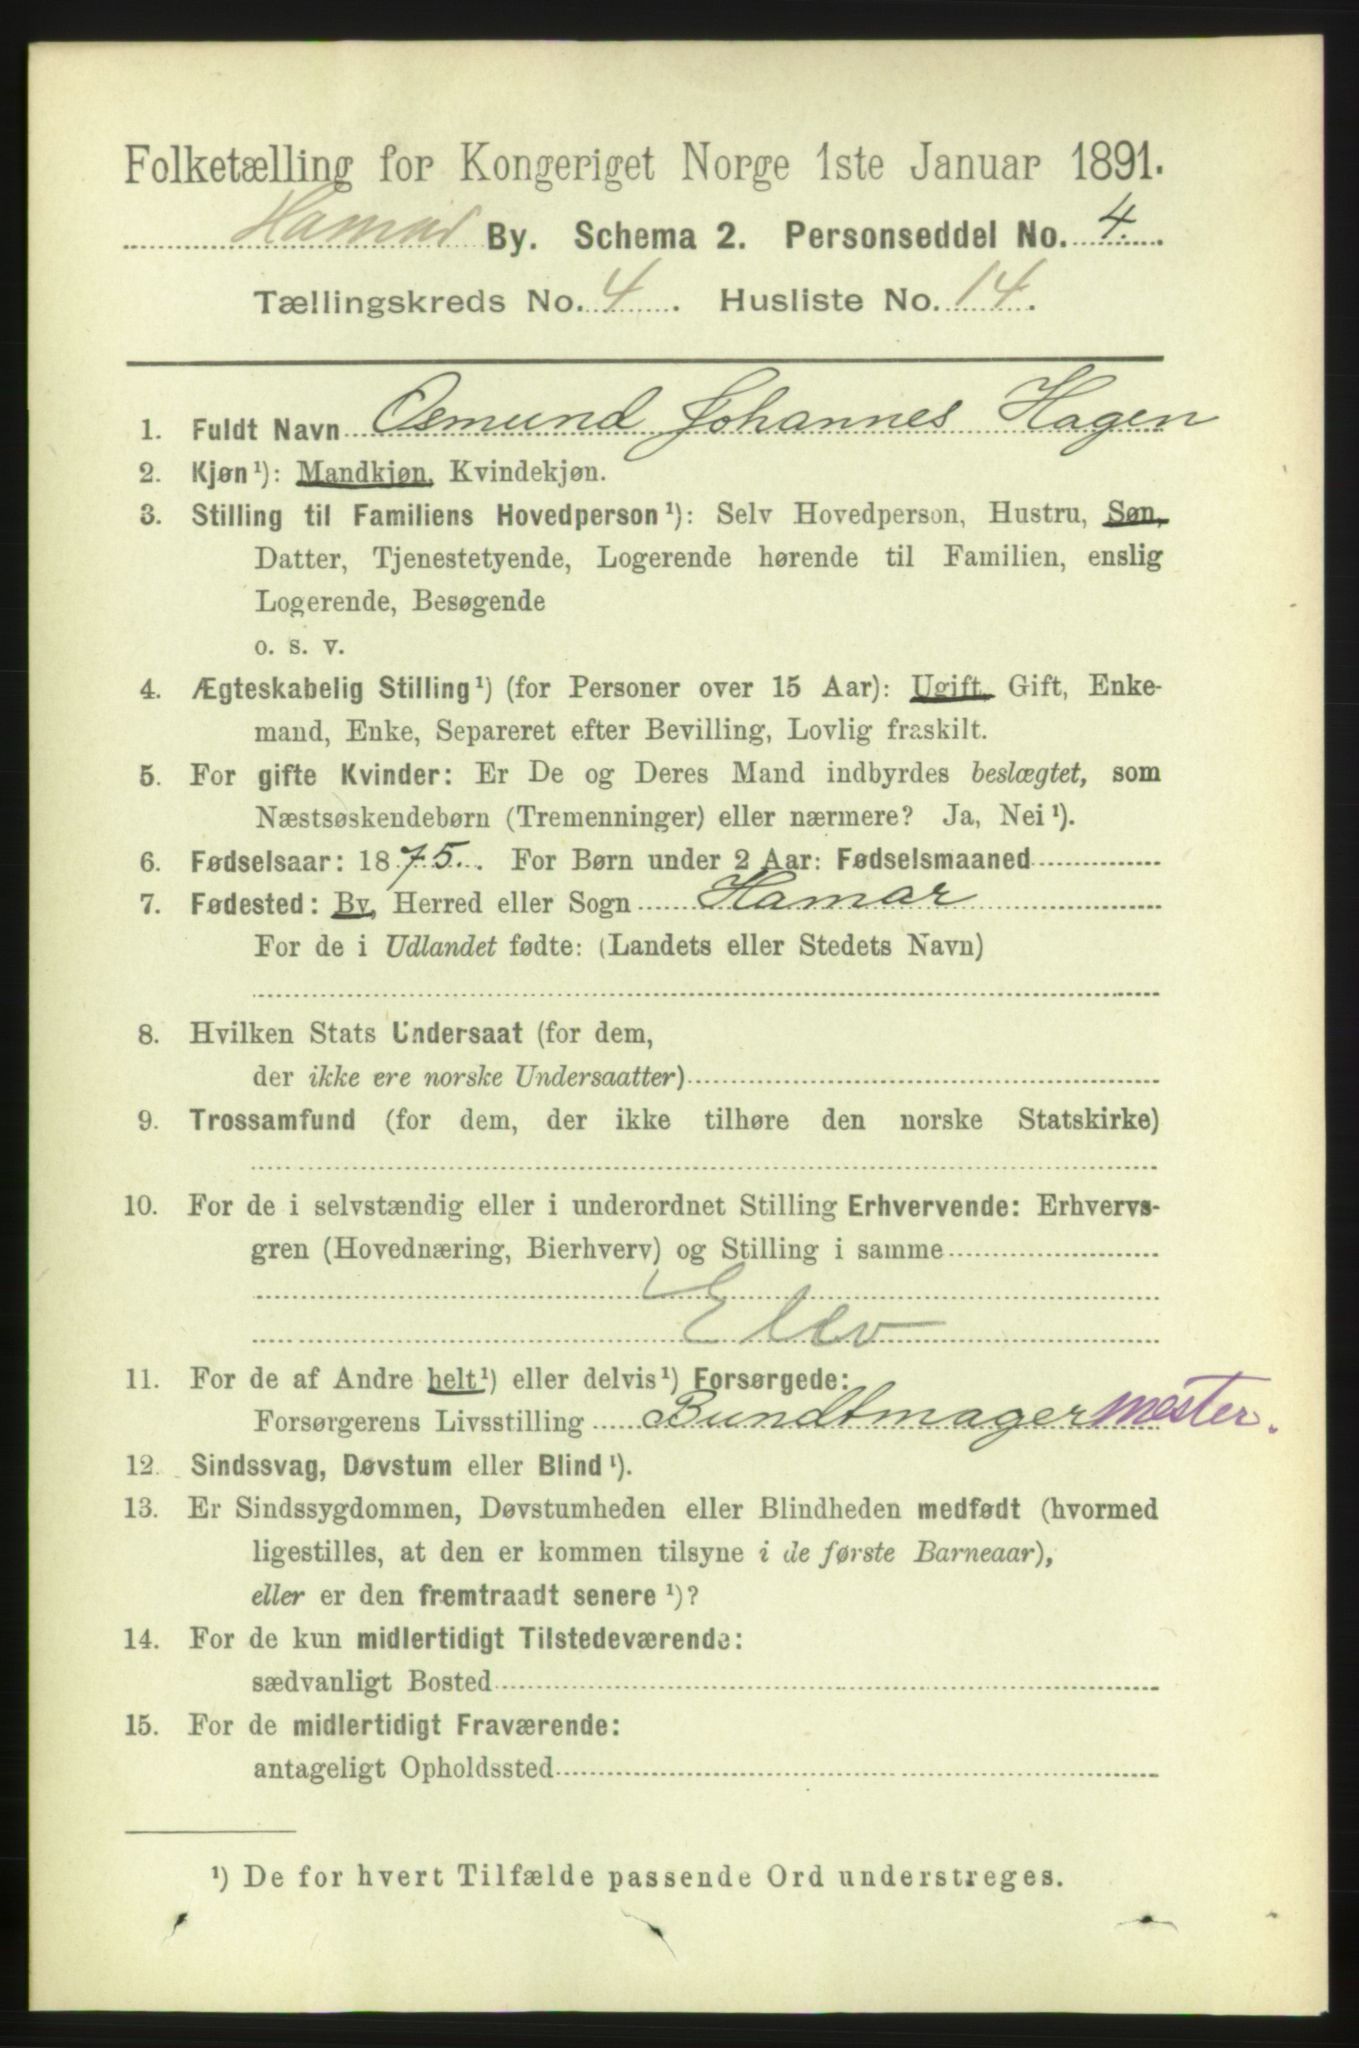 Folketælling for Kongeriget Norge 1ste Januar 1891.
Hamar By. Schema 2. Personseddel No. 4.
Tællingskreds No. 4. Husliste No. 14.
1. Fuldt Navn Osmund Johannes Hagen
2. Kjøn¹): Mandkjøn, Kvindekjøn.
3. Stilling til Familiens Hovedperson¹): Selv Hovedperson, Hustru, Søn,
Datter, Tjenestetyende, Logerende hørende til Familien, enslig
Logerende, Besøgende
o. s. v.
4. Ægteskabelig Stilling¹) (for Personer over 15 Aar): Ugift, Gift, Enke-
mand, Enke, Separeret efter Bevilling, Lovlig fraskilt.
5. For gifte Kvinder: Er De og Deres Mand indbyrdes beslægtet, som
Næstsøskendebørn (Tremenninger) eller nærmere? Ja, Nei¹).
6. Fødselsaar: 1875. For Børn under 2 Aar: Fødselsmaaned
7. Fødested: By, Herred eller Sogn Hamar
For de i Udlandet fødte: (Landets eller Stedets Navn)
8. Hvilken Stats Undersaat (for dem,
der ikke ere norske Undersaatter)
9. Trossamfund (for dem, der ikke tilhøre den norske Statskirke)
10. For de i selvstændig eller i underordnet Stilling Erhvervende: Erhvervs-
gren (Hovednæring, Bierhverv) og Stilling i samme
Elev
11. For de af Andre helt¹) eller delvis¹) Forsørgede:
Forsørgerens Livsstilling Bundtmagermester.
12. Sindssvag, Døvstum eller Blind¹).
13. Er Sindssygdommen, Døvstumheden eller Blindheden medfødt (hvormed
ligestilles, at den er kommen tilsyne i de første Barneaar),
eller er den fremtraadt senere¹)?
14. For de kun midlertidigt Tilstedeværende:
sædvanligt Bosted
15. For de midlertidigt Fraværende:
antageligt Opholdssted
¹) De for hvert Tilfælde passende Ord understreges.